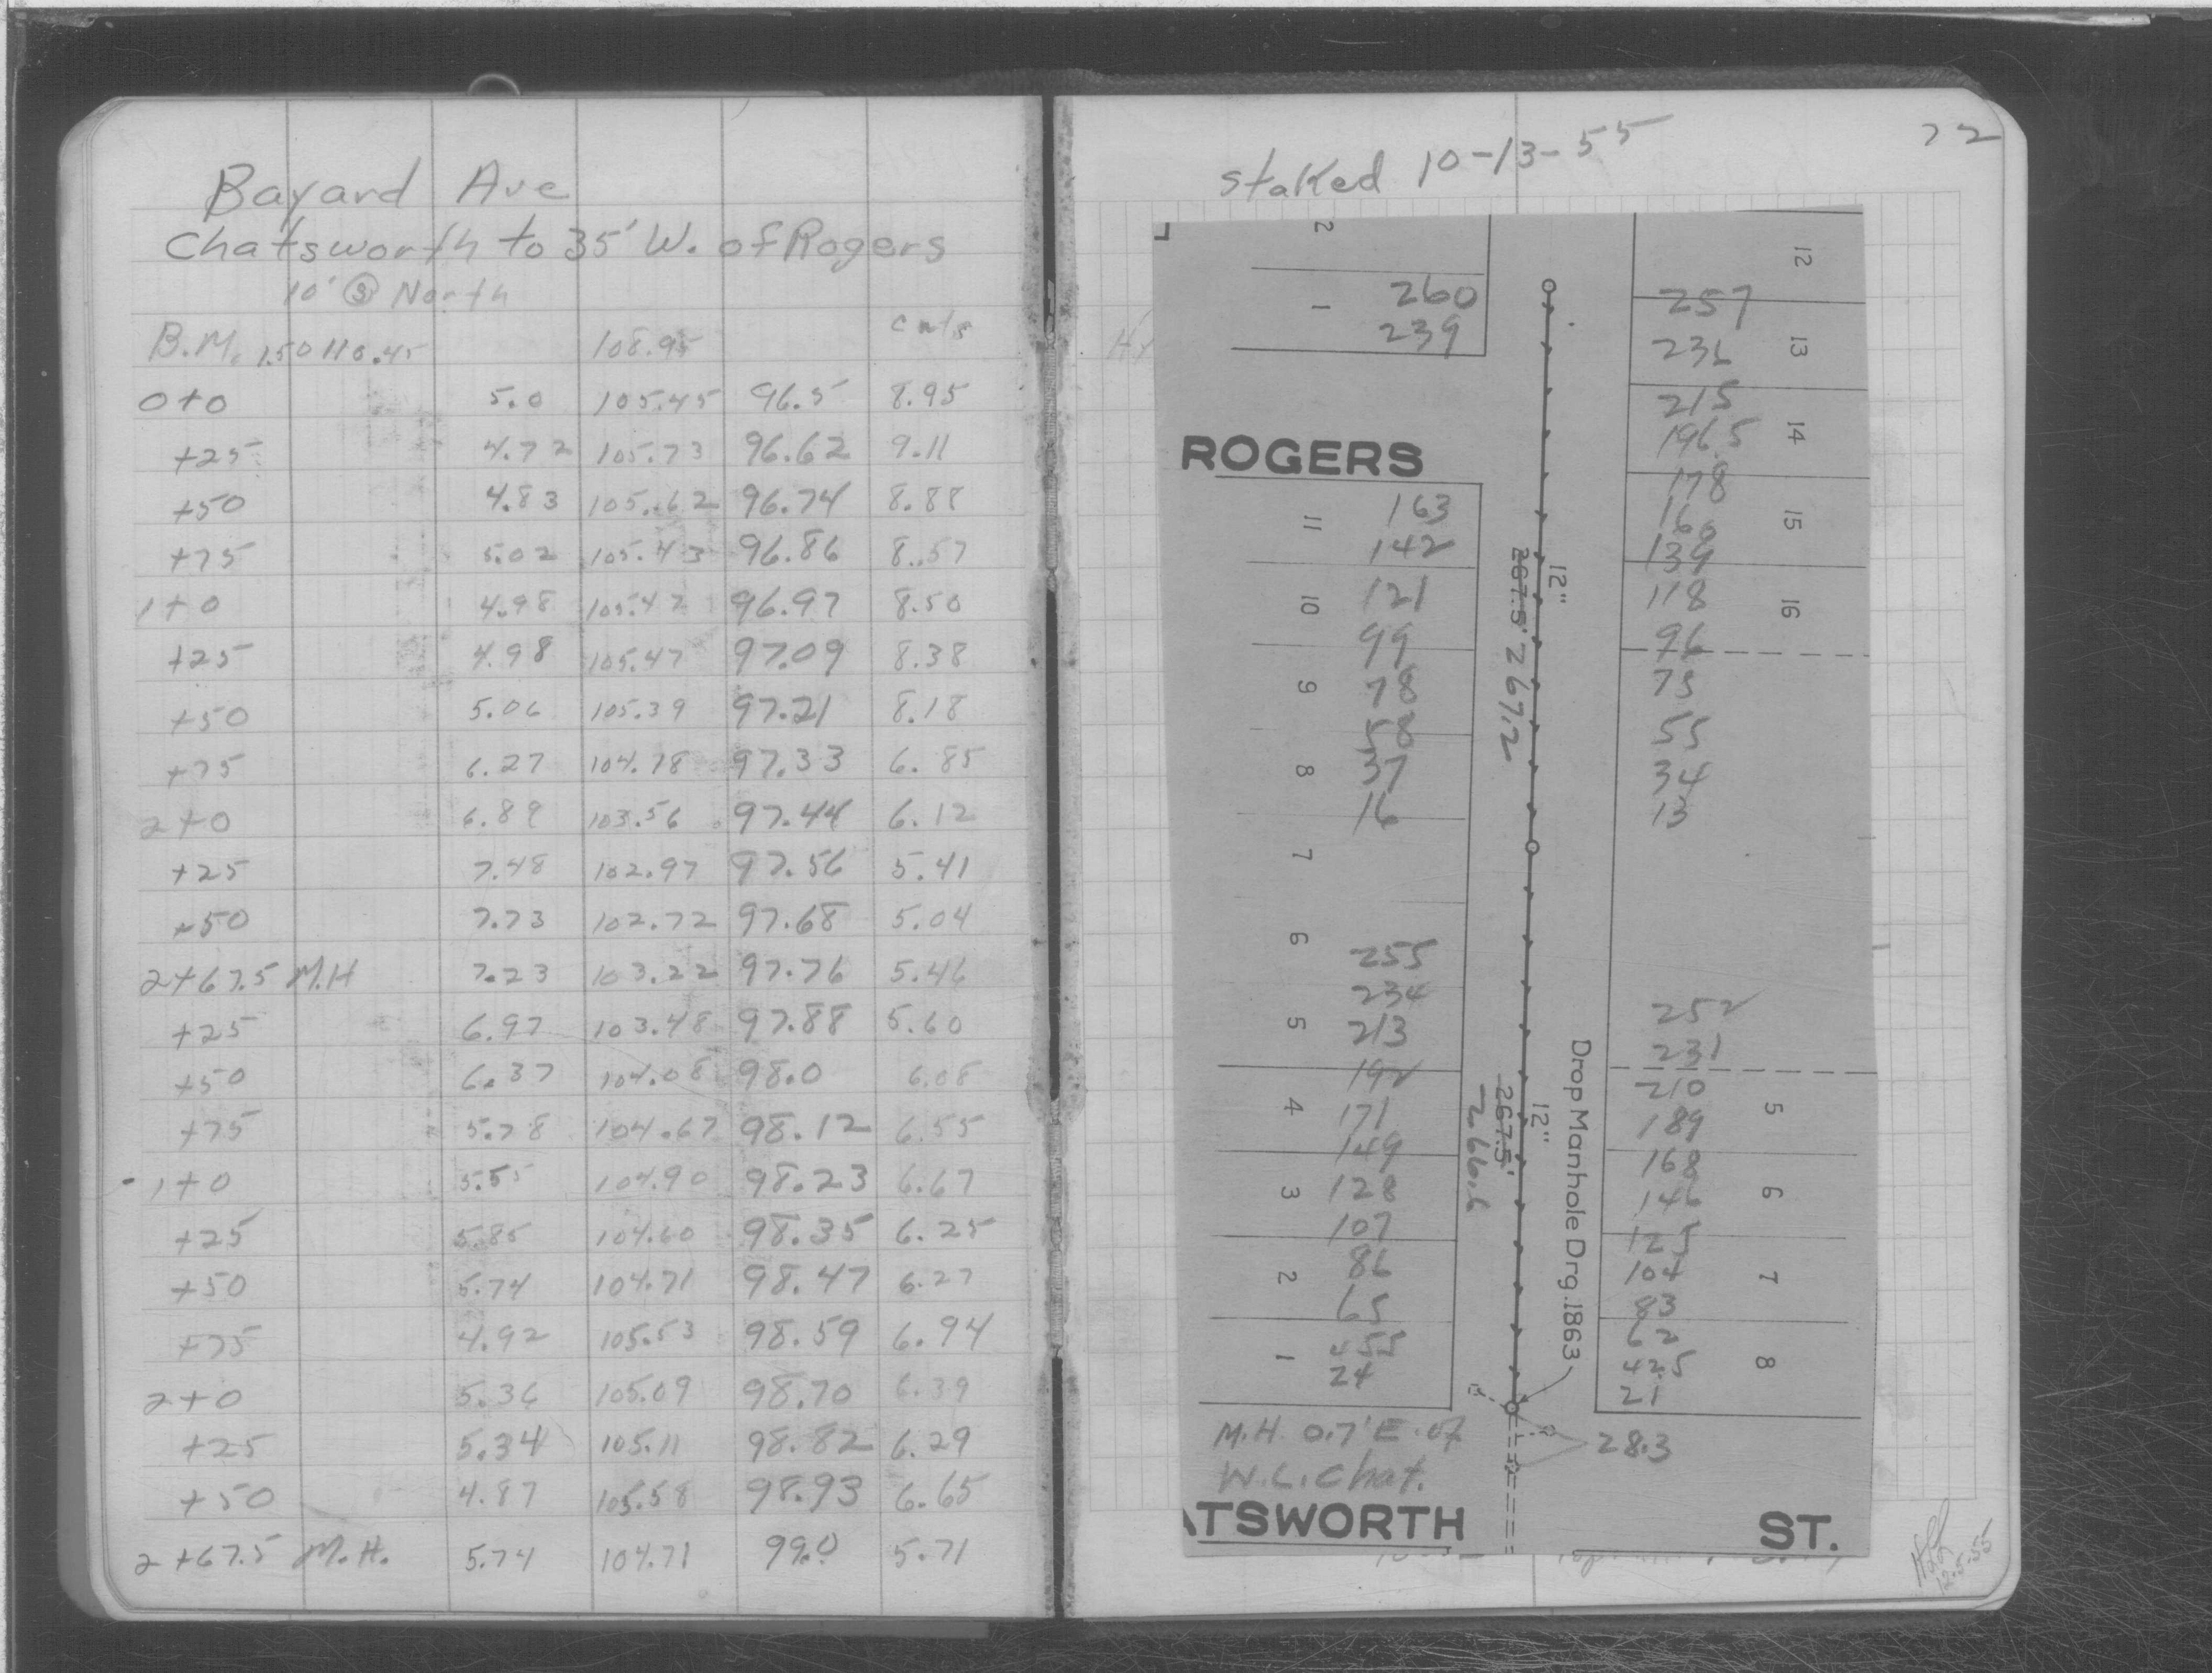 Bayard Ave
Chatsworth to 35' W. of Rogers
10' Ⓢ North
B.M. 1.50 110.45 108.95 cuts
0+0 5.0 105.45 96.5 8.95
+25 4.72 105.73 96.62 9.11
+50 4.83 105.62 96.74 8.88
+75 5.02 105.43 96.86 8.57
1+0 4.98 105.47 96.97 8.50
+25 4.98 105.47 97.09 8.38
+50 5.06 105.39 97.21 8.18
+75 6.27 104.18 97.33 6.85
2+0 6.89 103.56 97.44 6.12
+25 7.48 102.97 97.56 5.41
+50 7.73 102.72 97.68 5.04
2+67.5 M.H 7.23 103.22 97.76 5.46
+25 6.97 103.48 97.88 5.60
+50 6.37 104.08 98.0 6.08
+75 5.78 104.67 98.12 6.55
1+0 5.55 104.90 98.23 6.67
+25 5.85 104.60 98.35 6.25
+50 5.74 104.71 98.47 6.27
+75 4.92 105.53 98.59 6.94
2+0 5.36 105.09 98.70 6.39
+25 5.34 105.11 98.82 6.29
+50 4.87 105.58 98.93 6.65
2+67.5 M.H. 5.74 104.71 99.0 5.71
72
staked 10-13-55
2
12
1
260
239
257
236
13
215
196.5
14
ROGERS
178
160
139
15
11
163
142
12"
267.5' 267.2
10
121
99
118
96
16
9
78
58
75
55
8
37
16
34
13
7
6
255
234
5
213
192
252
231
210
189
5
4
171
149
12"
267.5'
266.6
168
146
6
3
128
107
125
104
83
7
2
86
65
62
42.5
21
8
1
45.5
24
Drop Manhole Drg. 1863
M.H. 0.7' E. of
W.L. Chat.
28.3
ATSWORTH ST.
12.5.55